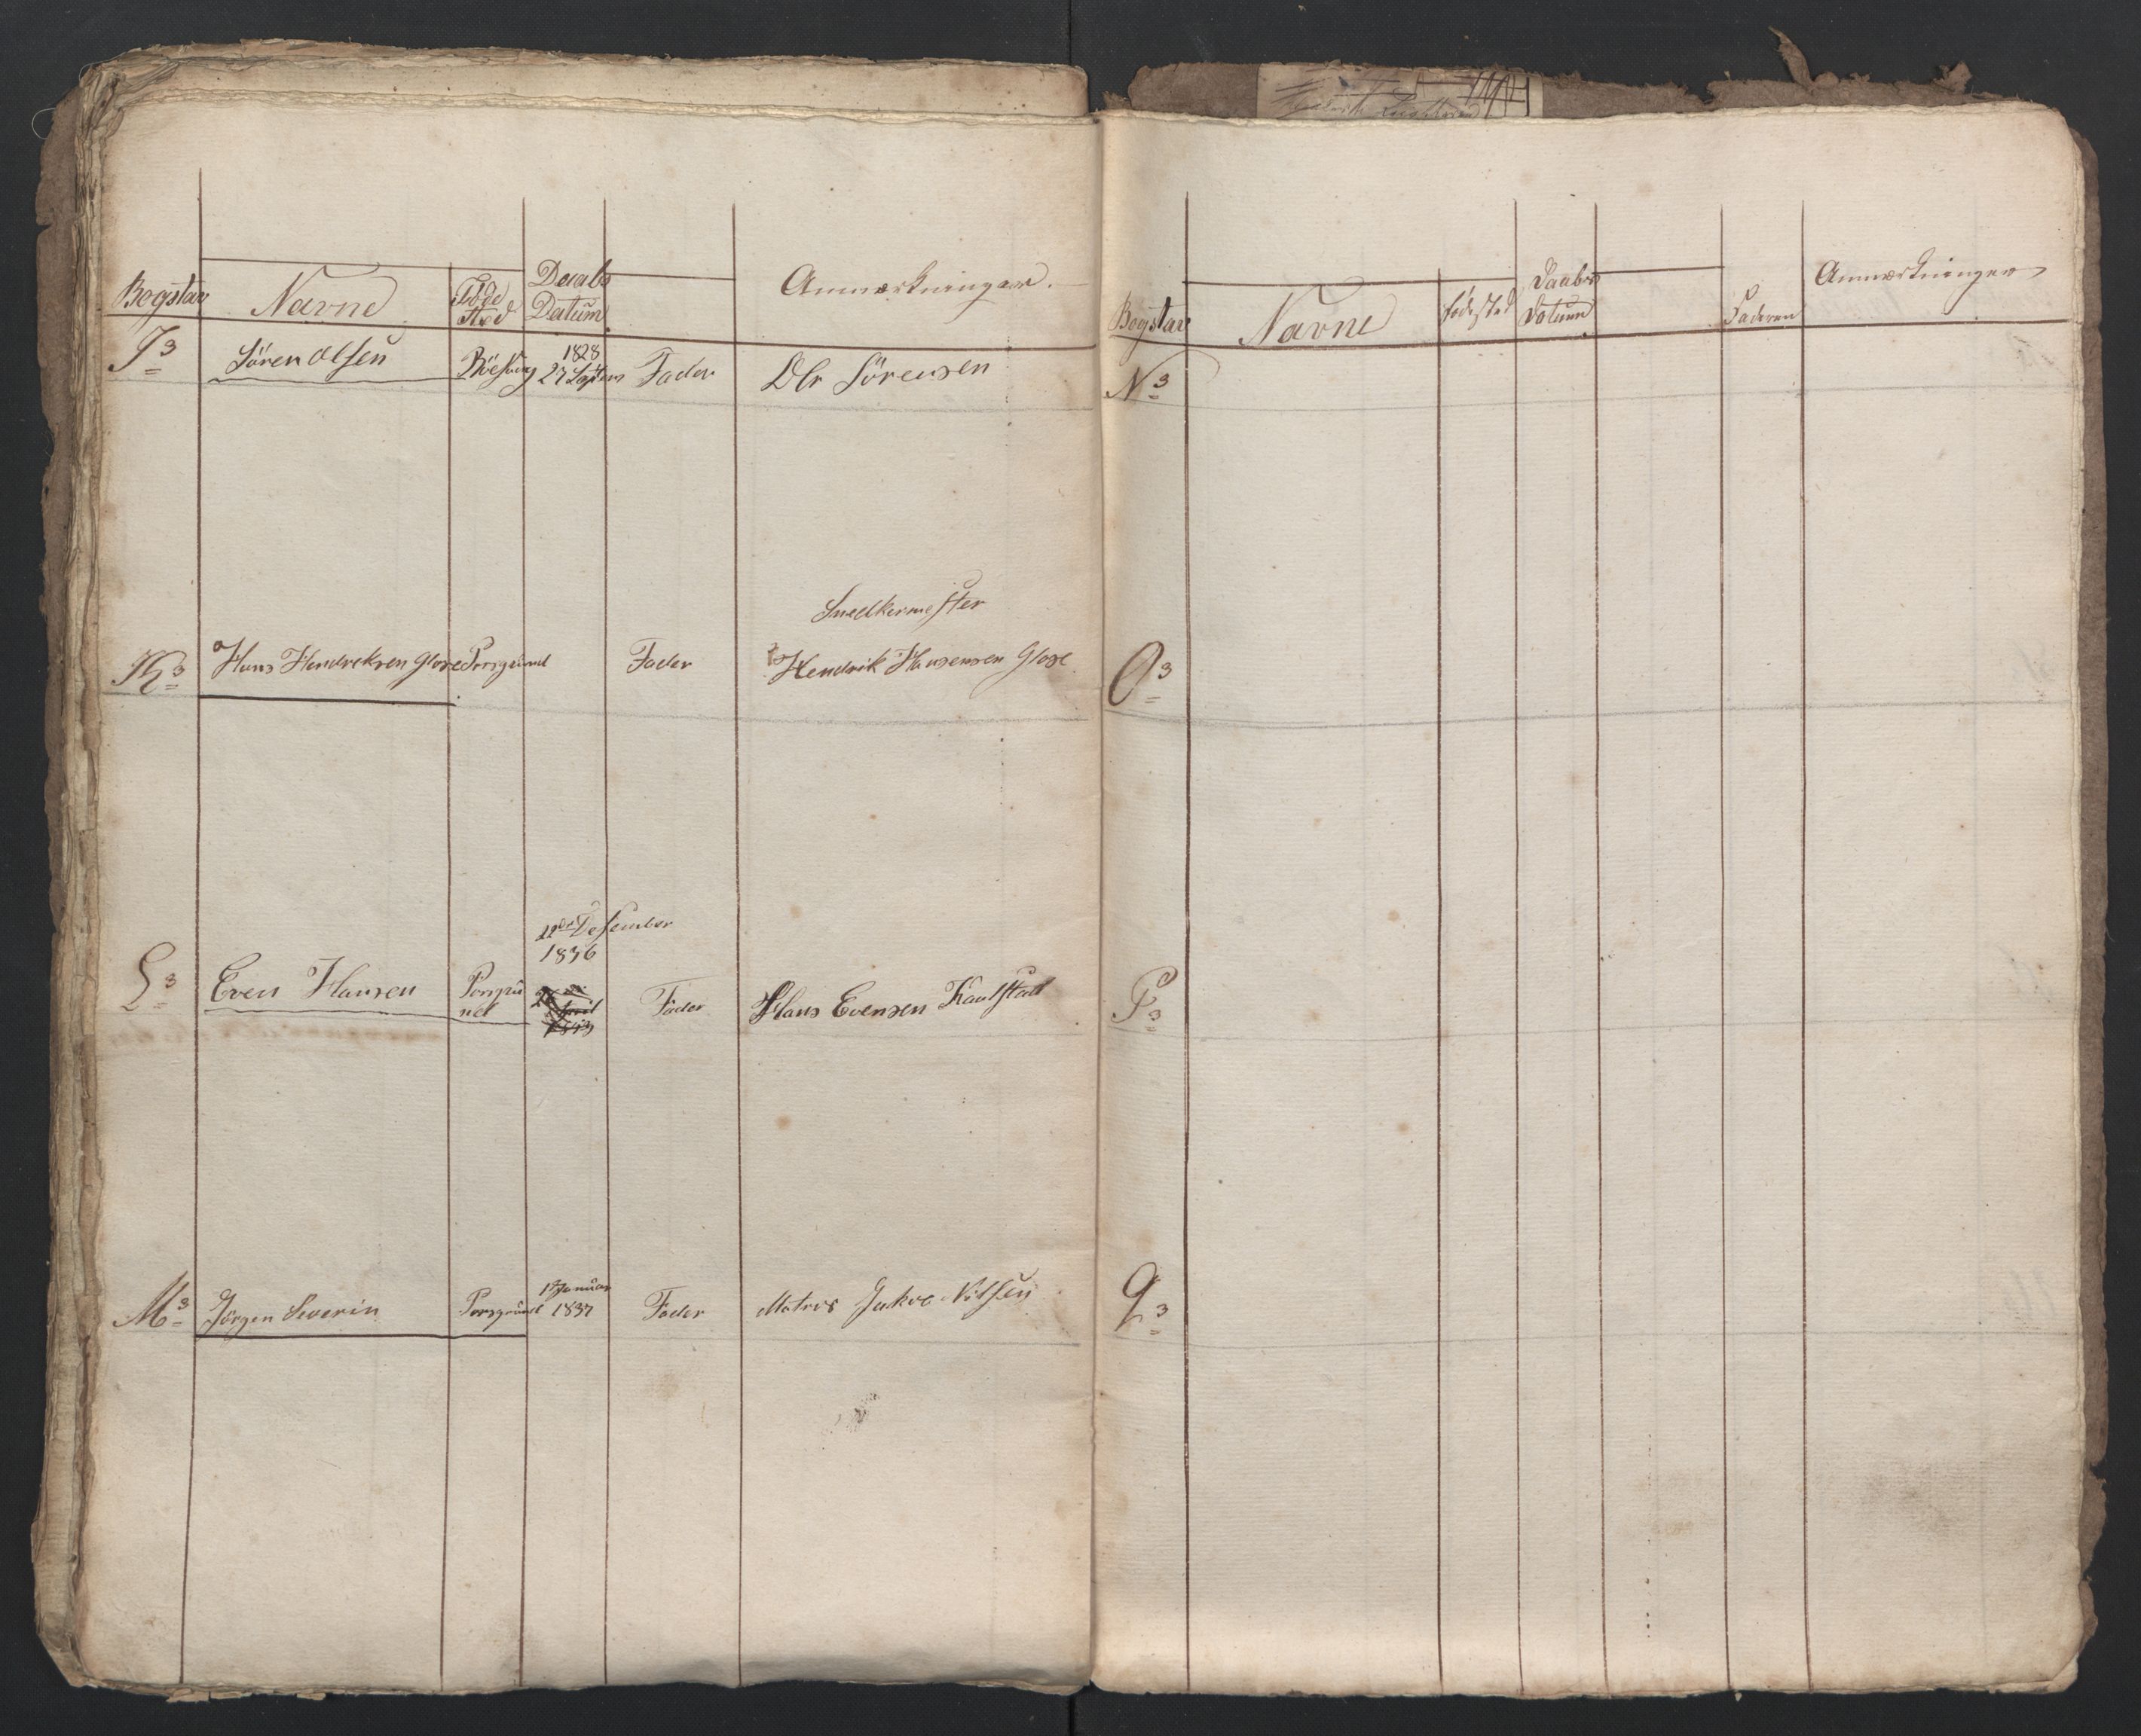 Bogstav Navne Föde Sted Daabs Datum Anmærkninger.
J3 Sören Olsen 1828 27 Septem Fader Ole Sörensen
Snedkermester
K3 Hans Hendreksen Glose Porsgrund Fader Hendrik Hansensen Glose
22de Desember
1836
L3 Even Hansen Porsgrunel Fader Hans Evensen Kaalstad
M3 Jörgen Severin Porsgrund 1 Januar 1837 Fader Matros Jakob Nilsen
Bogstav Navne Födested Daabs Datum Faderen Anmærkninger
N3
O3
P3
Q3